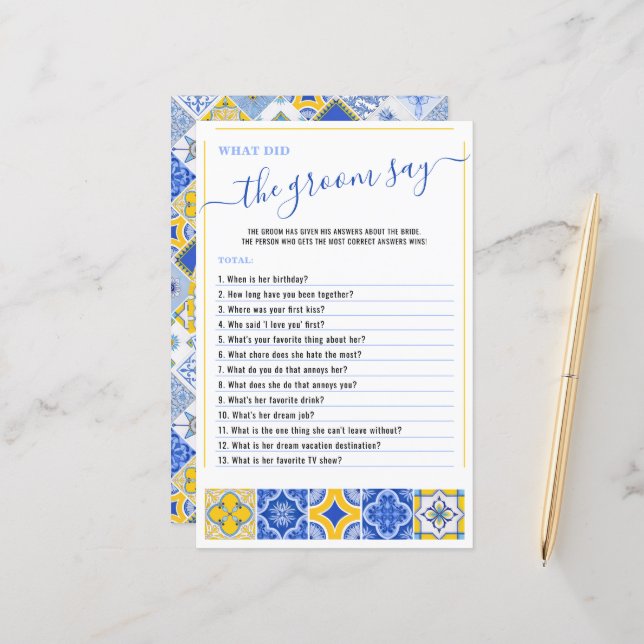 WHAT DID
the groom say
THE GROOM HAS GIVEN HIS ANSWERS ABOUT THE BRIDE.
THE PERSON WHO GETS THE MOST CORRECT ANSWERS WINS!
TOTAL:
1. When is her birthday?
2. How long have you been together?
3. Where was your first kiss?
4. Who said 'I love you' first?
5. What's your favorite thing about her?
6. What chore does she hate the most?
7. What do you do that annoys her?
8. What does she do that annoys you?
9. What's her favorite drink?
10. What's her dream job?
11. What is the one thing she can't leave without?
12. What is her dream vacation destination?
13. What is her favorite TV show?